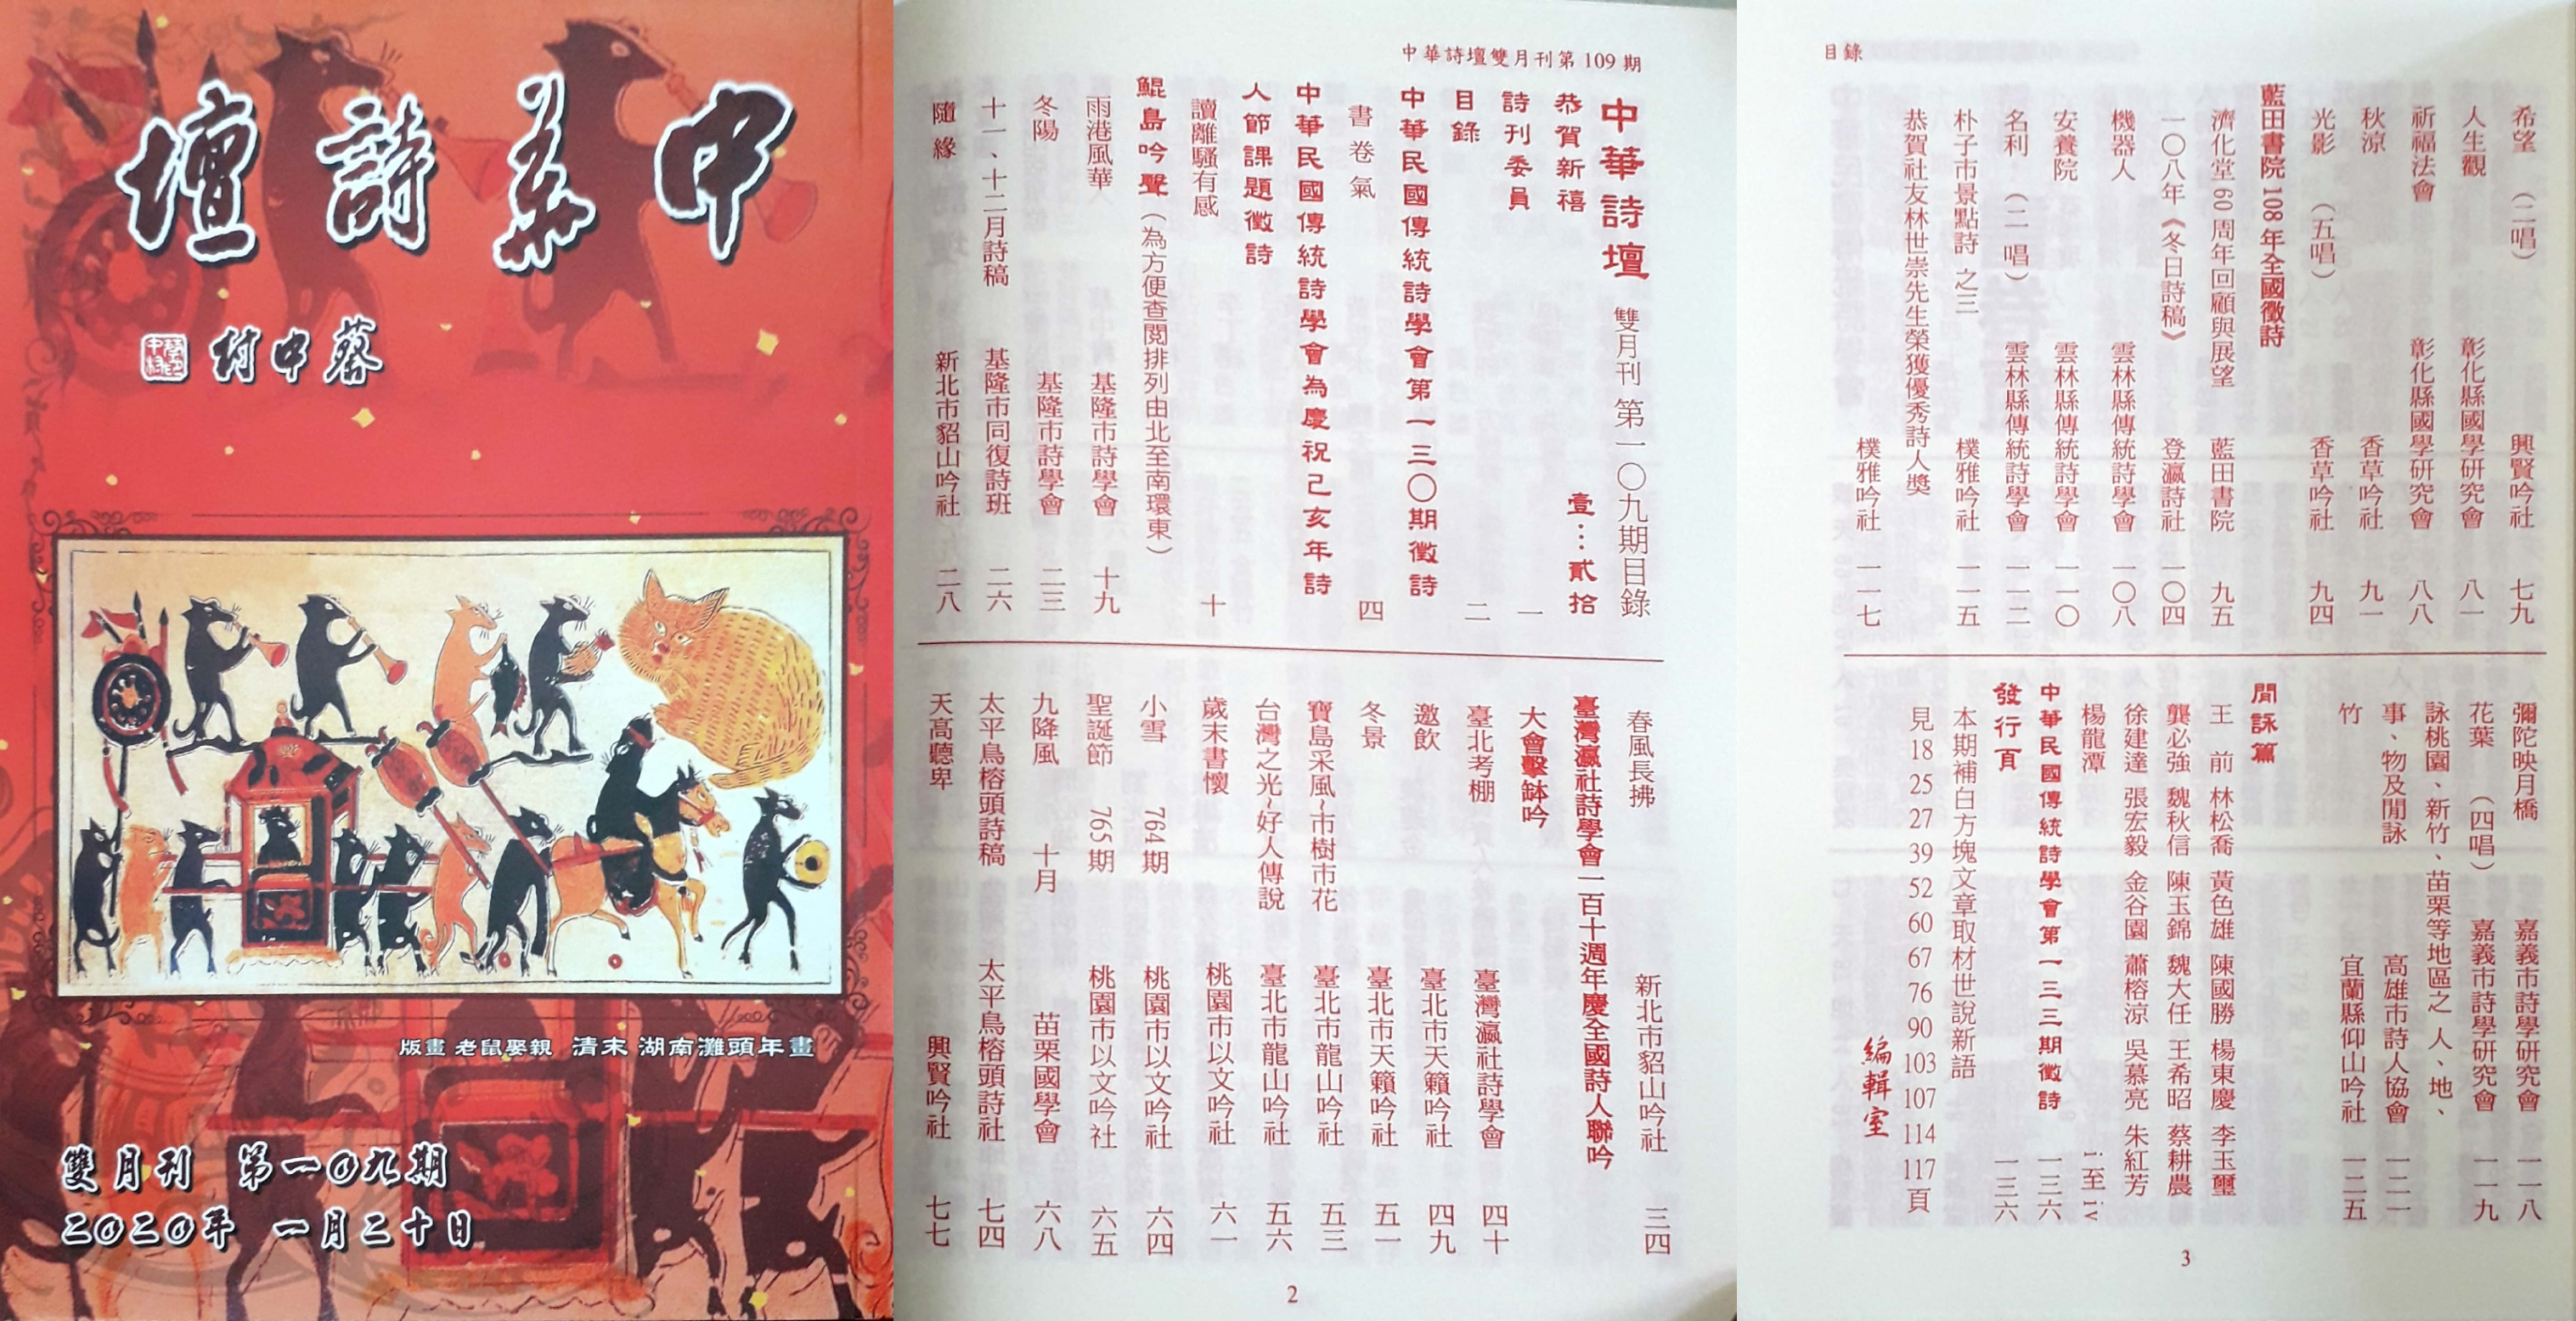 中華詩壇
蔡中村
版畫 老鼠娶親 清末 湖南灘頭年畫
雙月刊 第一〇九期
二〇二〇年 一月二十日
中華詩壇雙月刊第 109 期
中華詩壇 雙月刊 第一〇九期目錄
恭賀新禧 壹…貳拾
詩刊委員 一
目錄 二
中華民國傳統詩學會第一三〇期徵詩
書卷氣 四
中華民國傳統詩學會為慶祝己亥年詩
人節課題徵詩
讀離騷有感 十
鯤島吟聲（為方便查閱排列由北至南環東）
雨港風華 基隆市詩學會 十九
冬陽 基隆市詩學會 二三
十一、十二月詩稿 基隆市同復詩班 二六
隨緣 新北市貂山吟社 二八
春風長拂 新北市貂山吟社 三四
臺灣瀛社詩學會一百十週年慶全國詩人聯吟
大會擊鉢吟
臺北考棚 臺灣瀛社詩學會 四十
邀飲 臺北市天籟吟社 四九
冬景 臺北市天籟吟社 五一
寶島采風~市樹市花 臺北市龍山吟社 五三
台灣之光~好人傳說 臺北市龍山吟社 五六
歲末書懷 桃園市以文吟社 六一
小雪 764 期 桃園市以文吟社 六四
聖誕節 765 期 桃園市以文吟社 六五
九降風 十月 苗栗國學會 六八
太平鳥榕頭詩稿 太平鳥榕頭詩社 七四
天高聽卑 興賢吟社 七七
2
目錄
希望 （二唱） 興賢吟社 七九
人生觀 彰化縣國學研究會 八一
祈福法會 彰化縣國學研究會 八八
秋涼 香草吟社 九一
光影 （五唱） 香草吟社 九四
藍田書院 108 年全國徵詩
濟化堂 60 周年回顧與展望 藍田書院 九五
一〇八年《冬日詩稿》 登瀛詩社 一〇四
機器人 雲林縣傳統詩學會 一〇八
安養院 雲林縣傳統詩學會 一一〇
名利 （二一唱） 雲林縣傳統詩學會 一一二
朴子市景點詩 之三 樸雅吟社 一一五
恭賀社友林世崇先生榮獲優秀詩人獎
樸雅吟社 一一七
彌陀映月橋 嘉義市詩學研究會 一一八
花葉 （四唱） 嘉義市詩學研究會 一一九
詠桃園、新竹、苗栗等地區之 人、地、
事、物及閒詠 高雄市詩人協會 一二一
竹 宜蘭縣仰山吟社 一二五
閒詠篇
王 前 林松喬 黃色雄 陳國勝 楊東慶 李玉璽
龔必強 魏秋信 陳玉錦 魏大任 王希昭 蔡耕農
徐建達 張宏毅 金谷園 蕭榕涼 吳慕亮 朱紅芳
楊龍潭 i 至 iv
中華民國傳統詩學會第一三三期徵詩 一三六
發行頁 一三六
本期補白方塊文章取材世說新語
見 18 25 27 39 52 60 67 76 90 103 107 114 117 頁
編輯室
3